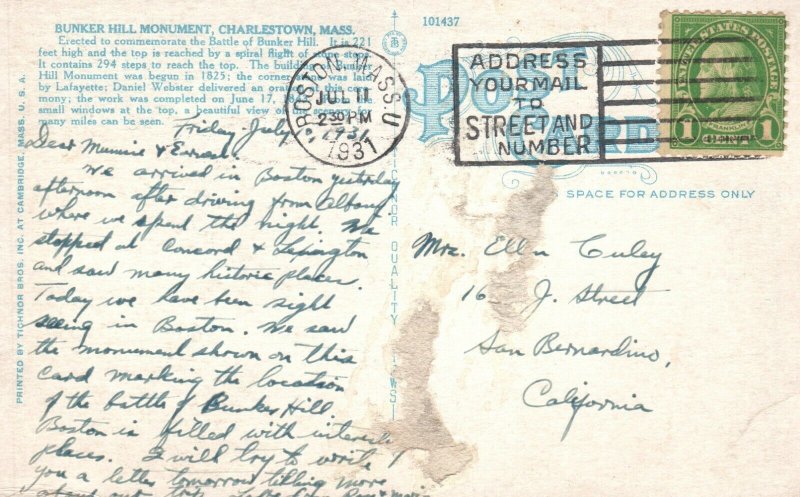 BUNKER HILL MONUMENT, CHARLESTOWN, MASS.
Erected to commemorate the Battle of Bunker Hill. It is 221
feet high and the top is reached by a spiral flight of stone steps.
It contains 294 steps to reach the top. The building of Bunker
Hill Monument was begun in 1825; the corner stone was laid
by Lafayette; Daniel Webster delivered an oration at this cere-
mony; the work was completed on June 17, the
small windows at the top, a beautiful view of the for
many miles can be seen.
Friday July
Dear Mummie & Earnest
We arrived in Boston yesterday
afternoon after driving from Albany
where we spent the night. We
stopped at Concord & Lexington
and saw many historic places.
Today we have been sight
seeing in Boston. We saw
the monument shown on this
card marking the location
of the battle of Bunker Hill.
Boston is filled with interest
places. I will try to write
you a letter tomorrow telling more
about our trip.
PRINTED BY TICHNOR BROS. INC. AT CAMBRIDGE, MASS. U. S. A.
TICHNOR QUALITY VIEWS
101437
BOSTON, MASS. U
JUL 11
2:30 PM
1931
ADDRESS
YOUR MAIL
TO
STREET AND
NUMBER
POST
CARD
UNITED STATES POSTAGE
FRANKLIN
1 1
SPACE FOR ADDRESS ONLY
Mrs. Ellen Culey
16 J. Street
San Bernardino,
California